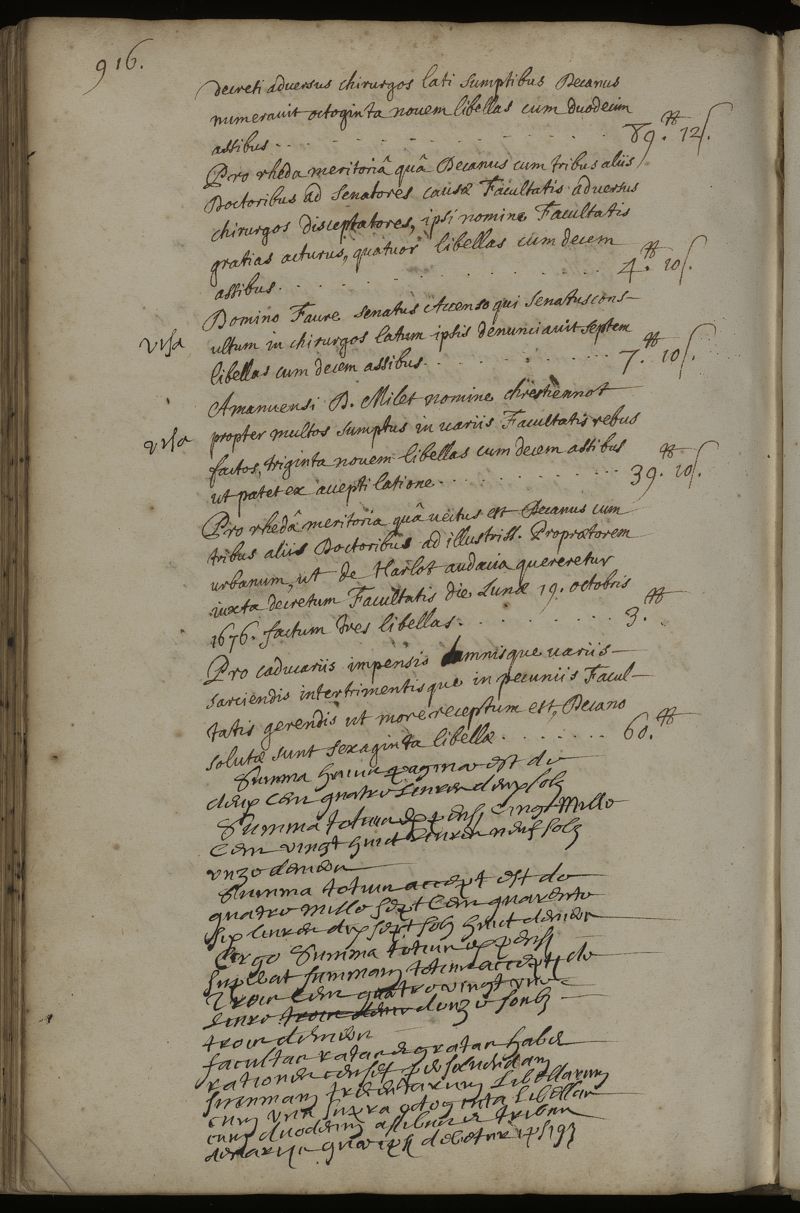 916.
decreti adversus chirurgos lati sumptibus Decanus
numerauit octoginta nouem libellas cum duodecim
assibus . . . . . . . . . . . . 89.tt 12ſ.
Pro rheda meritoriâ quâ Decanus cum tribus aliis
Doctoribus ad Senatores causæ Facultatis adversus
chirurgos disceptatores, ipsi nomine Facultatis
gratias acturus, quatuor libellas cum decem
assibus . . . . . . . . . . . . 4.tt 10ſ.
Domino Faure senatus Accenso qui Senatuscons-
visa
ultum in chirurgos latum ipsis denunciauit septem
libellas cum decem assibus . . . . . . . . 7.tt 10ſ.
Amanuensi D. Milet nomine chrestiennot
visa
propter multos sumptus in uariis Facultatis rebus
factos, triginta nouem libellas cum decem assibus
ut patet ex accepti latione . . . . . . . . 39.tt 10ſ.
Pro rhedâ meritoria quâ uectus est Decanus cum
tribus aliis Doctoribus ad illustriss. Proprætorem
urbanum, ut de Harlot audacia quereretur
iuxta decretum Facultatis die Lunæ 19. octobris
1676. factum tres libellas . . . . . . . . 3.tt
Pro caducariis impensis damnisque uariis
sarciendis intertrimentisque in pecuniis Facul-
tatis gerendis ut more receptum est, Decano
solutæ sunt sexaginta libellæ . . . . . . . 60.tt
Summa huius paginae est de
deux cens quatre Livres deux solz
Summa totius expensi cinq Mille
Cens vingt huict Livres neuf solz
unze deniers
Summa totius accepti est de
quatre mille sept Cens quarente
six livres dix sept solz huict deniers
Ergo Summa totius expensi
superat summam totius accepti de
Trois Cens quatre vingt une
Livre trois deniers donze soubz
trois deniers
facultas ratas et gratas habet
rationes censet persoluendam
summam trecentarum Libellarum
cum una supra octoginta Libellas
cum duodecim assibus et tribus
denariis quae ipsi debetur